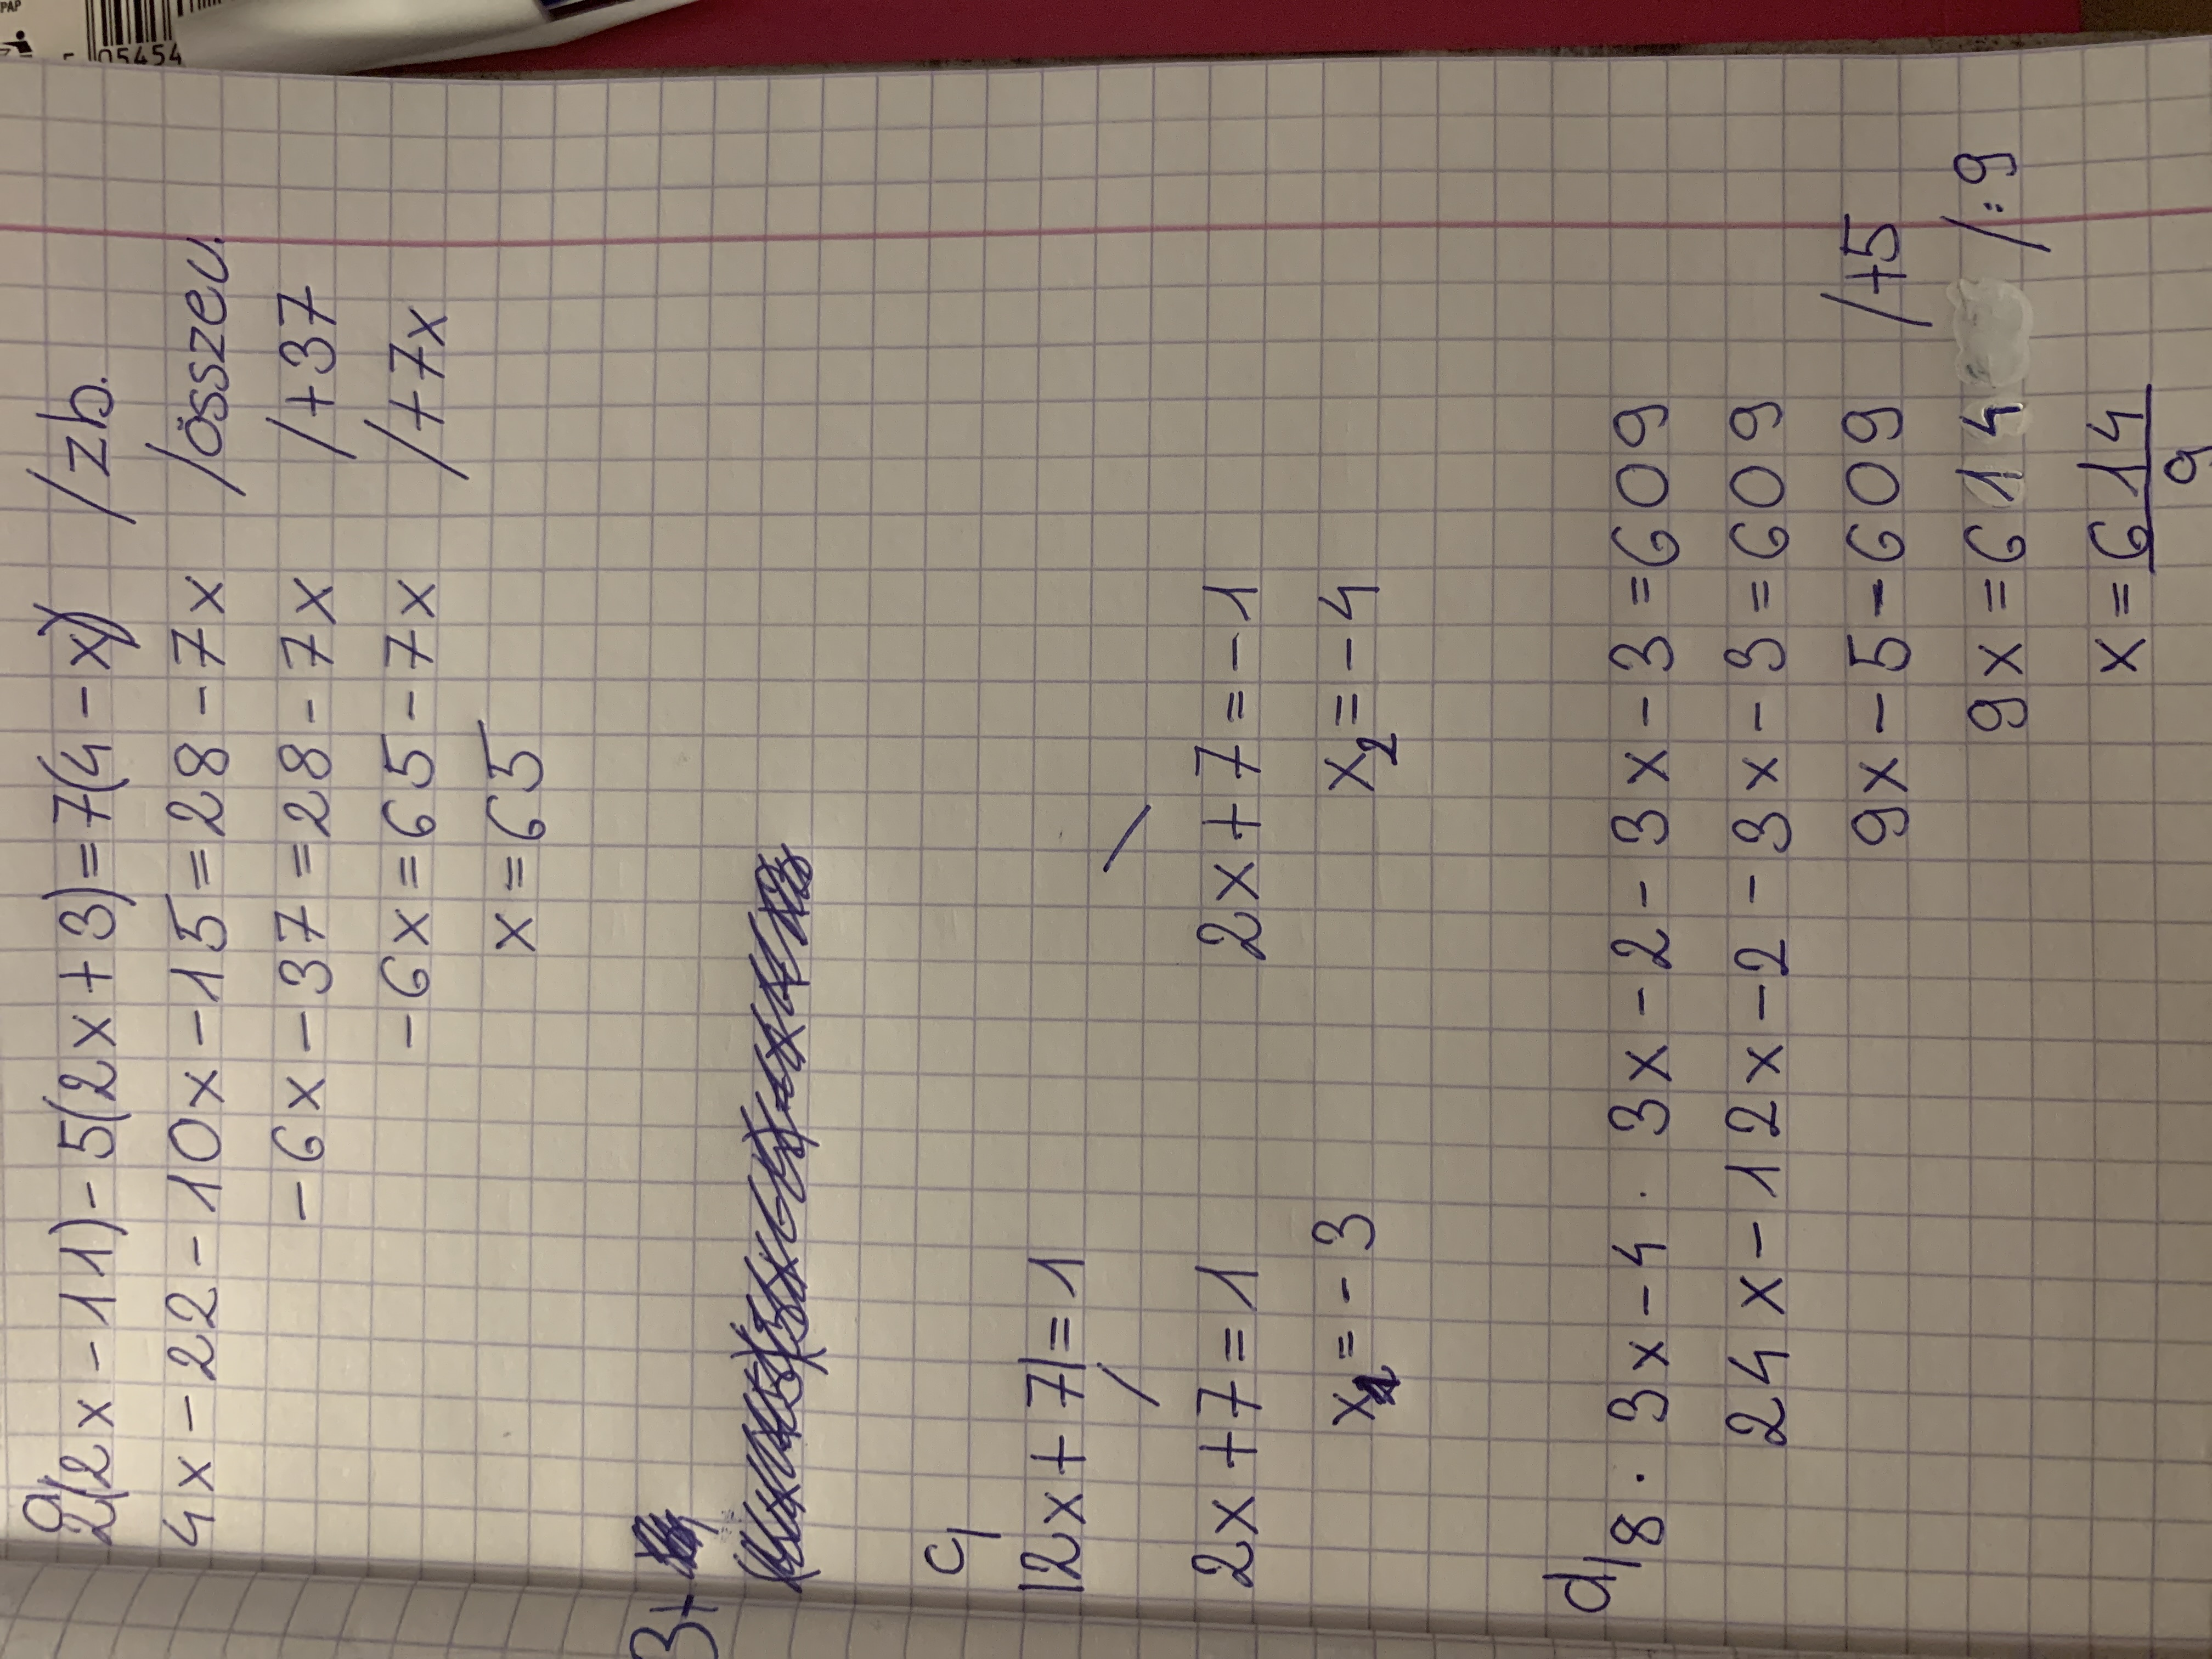 a)
2(2x-11)-5(2x+3)=7(4-x) /zb.
4x-22-10x-15=28-7x /összev.
-6x-37=28-7x /+37
-6x=65-7x /+7x
x=65
c)
|2x+7|=1
2x+7=1 2x+7=-1
x₁=-3 x₂=-4
d)
8·3x-4·3x-2-3x-3=609
24x-12x-2-3x-3=609
9x-5-609 /+5
9x=614 /:9
x=614/9
PAP
05454